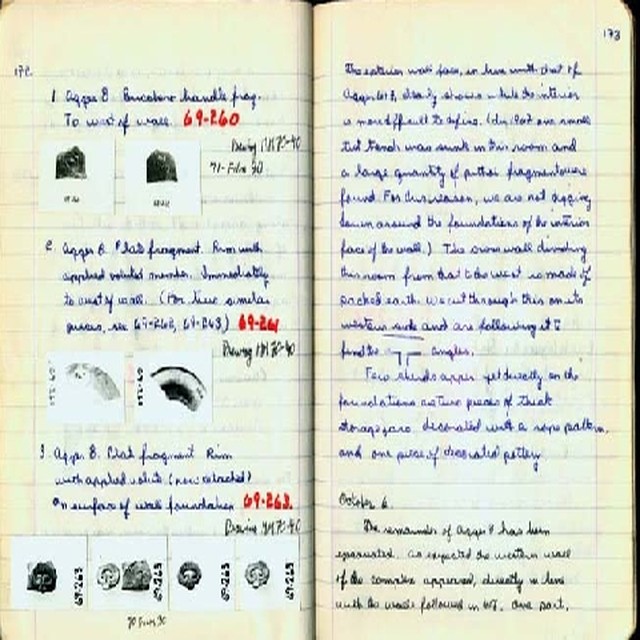 172.
1. Agger 8. Bucchero handle frag.
To west of wall. 69-260
Drawing HM 75-40
71-Film 30
2. Agger 8. Plate fragment. Rim with
applied voluted member. Immediately
to west of wall. (For two similar
pieces, see 69-262, 69-263) 69-261
Drawing HM 75-40
3. Agger 8. Plate fragment Rim
with applied volute (now detached)
On surface of wall foundation 69-263.
Drawing HM 75-40
69-263
69-263
69-263
69-263
173
The exterior wall face, in line with that of
clearly shows while the interior
is more difficult to define. (In 1967 one small
test trench was sunk in this room and
a large quantity of fragments were
found. For this reason, we are not digging
down around the foundations of the interior
face of the wall.) The cross wall dividing
this room from that to the west is made of
packed earth. We cut through this on its
western side and are following it to
find the angles.
Few sherds appear yet directly on the
foundations are two pieces of thick
storage jars, decorated with a rope pattern,
and one piece of decorated pottery
October 6.
The remainder of Agger 8 has been
excavated. As expected the western wall
of the complex appeared, directly in line
with the walls followed in one part,